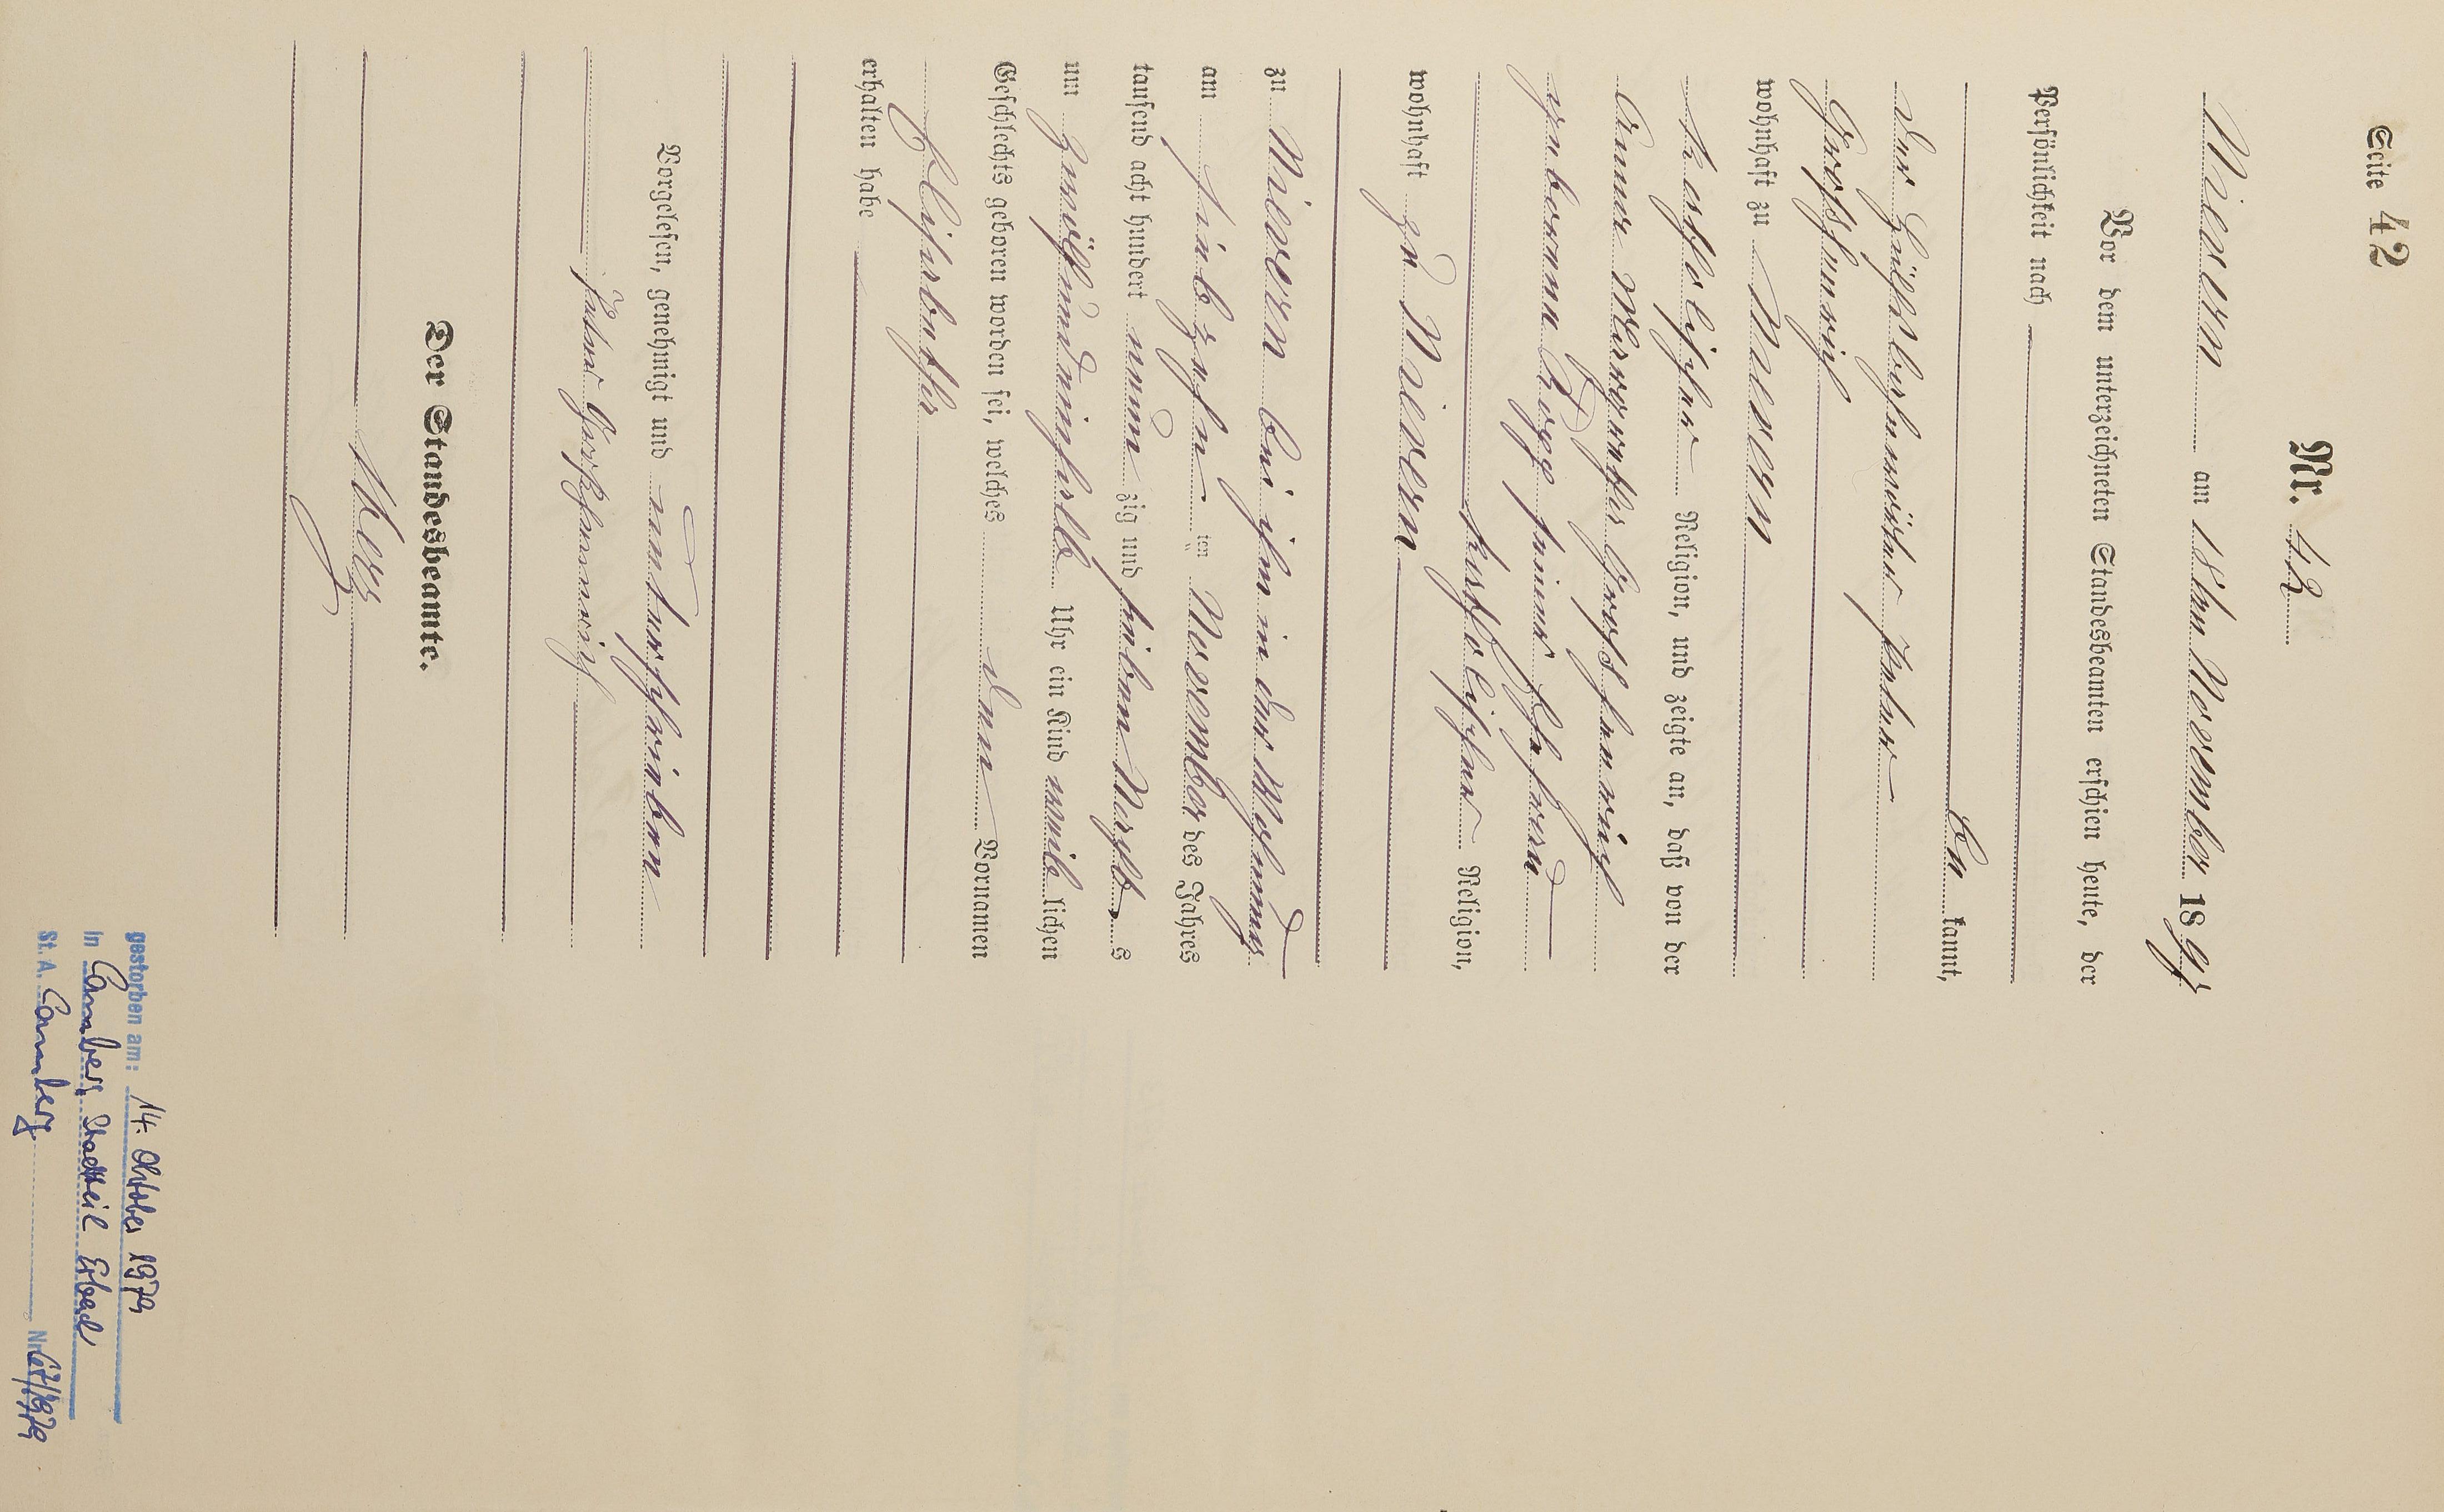 Seite 42
Nr. 42
Nievern am 18ten November 1897
Vor dem unterzeichneten Standesbeamten erschien heute, der
Persönlichkeit nach
be kannt,
der Hülfsbahnwärter Peter
Großhennrich
wohnhaft zu Nievern
katholischer Religion, und zeigte an, daß von der
Anna Margaretha Großhennrich
geborenen seiner Ehefrau
katholischer Religion,
wohnhaft zu Nievern
zu Nievern bei ihm in der Wohnung
am siebzehn ten November des Jahres
tausend acht hundert neun zig und sieben Nachts
um zwölfundeinhalb Uhr ein Kind weib lichen
Geschlechts geboren worden sei, welches den Vornamen
Elisabetha
erhalten habe
Vorgelesen, genehmigt und unterschrieben
Peter Großhennrich
Der Standesbeamte.
gestorben am: 14. Oktober 1979
in Camberg, Stadtteil Erbach
St. A. Camberg Nr. 67/1979